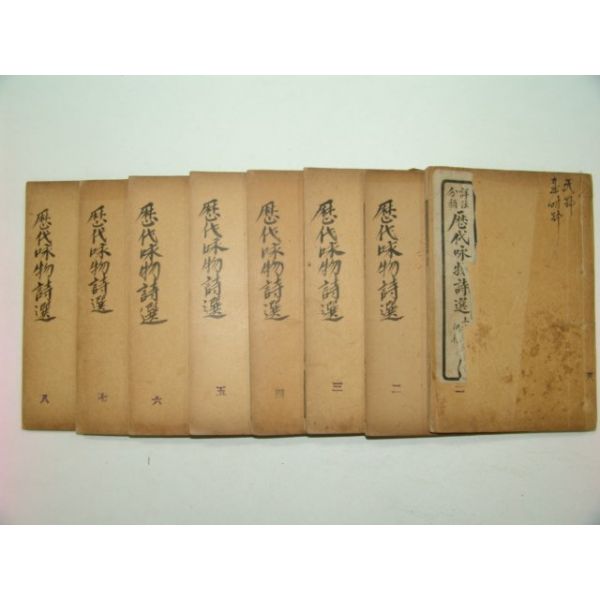 詳注
分類
歷代咏物詩選
歷代咏物詩選
二
歷代咏物詩選
三
歷代咏物詩選
四
歷代咏物詩選
五
歷代咏物詩選
六
歷代咏物詩選
七
歷代咏物詩選
八